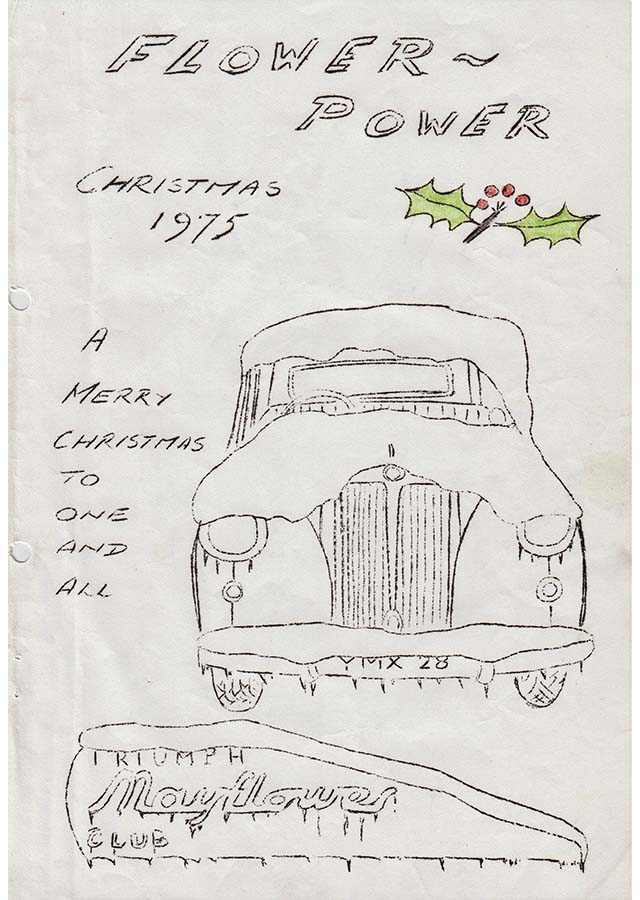 FLOWER~
POWER
CHRISTMAS
1975
A
MERRY
CHRISTMAS
TO
ONE
AND
ALL
YMX 28
TRIUMPH
Mayflower
CLUB